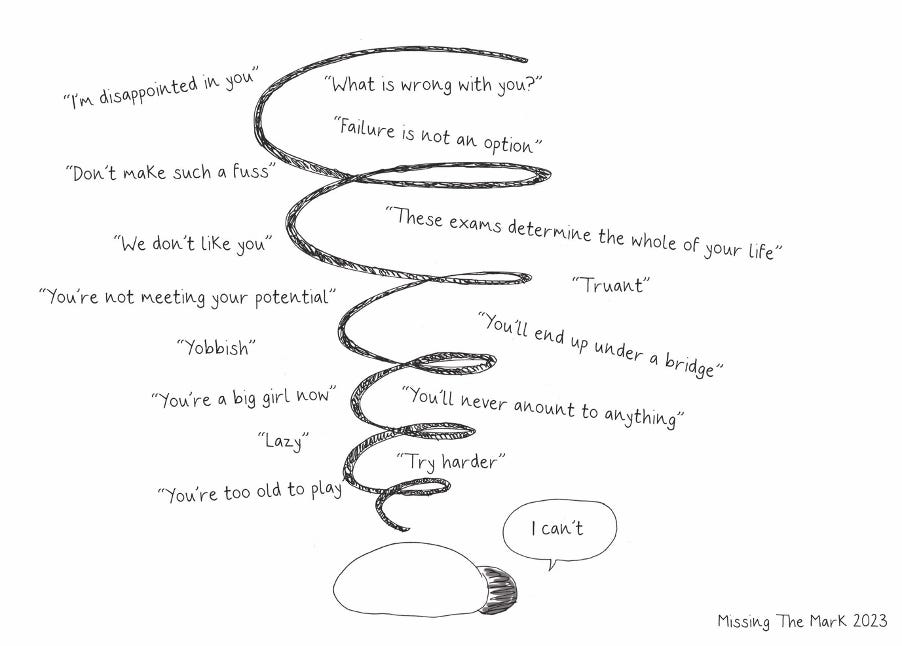 “I'm disappointed in you”
“What is wrong with you?”
“Failure is not an option”
“Don't make such a fuss”
“These exams determine the whole of your life”
“We don't like you”
“Truant”
“You're not meeting your potential”
“You'll end up under a bridge”
“Yobbish”
“You're a big girl now”
“You'll never anount to anything”
“Lazy”
“Try harder”
“You're too old to play”
I can't
Missing The Mark 2023